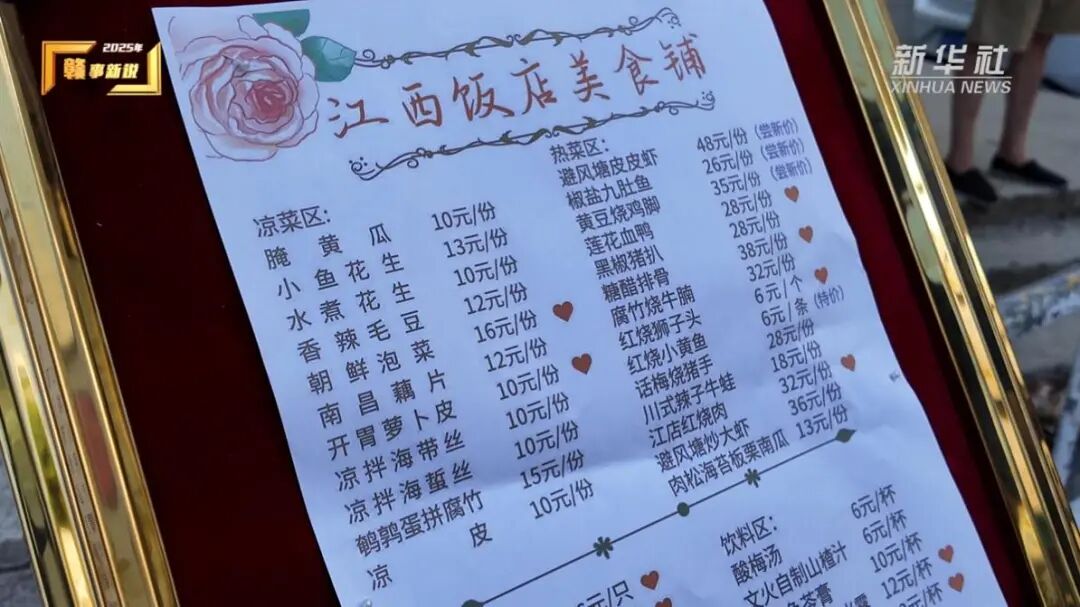 2025年
赣事新说
新华社
XINHUA NEWS
江西饭店美食铺
凉菜区:
腌黄瓜 10元/份
小鱼花生 13元/份
水煮花生 10元/份
香辣毛豆 12元/份
朝鲜泡菜 16元/份
南昌藕片 12元/份
开胃萝卜皮 10元/份
凉拌海带丝 10元/份
凉拌海蜇丝 10元/份
鹌鹑蛋拼腐竹 15元/份
凉皮 10元/份
热菜区:
避风塘皮皮虾 48元/份 (尝新价)
椒盐九肚鱼 26元/份 (尝新价)
黄豆烧鸡脚 35元/份 (尝新价)
莲花血鸭 28元/份
黑椒猪扒 28元/份
糖醋排骨 38元/份
腐竹烧牛腩 32元/份
红烧狮子头 6元/个
红烧小黄鱼 6元/条 (特价)
话梅烧猪手 28元/份
川式辣子牛蛙 18元/份
江店红烧肉 32元/份
避风塘炒大虾 36元/份
肉松海苔板栗南瓜 13元/份
元/只
饮料区:
酸梅汤 6元/杯
文火自制山楂汁 6元/杯
苓膏 10元/杯
12元/杯